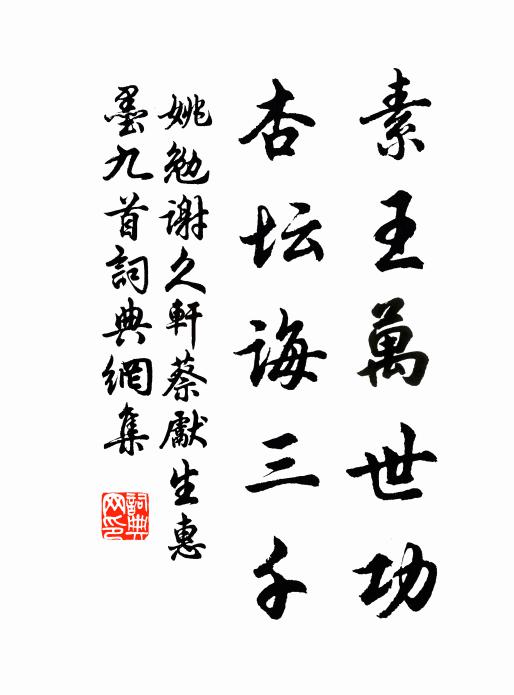 素王萬世功
杏坛诲三千
姚勉谢久軒蔡獻生惠
墨九首詞典網集
詞典網印